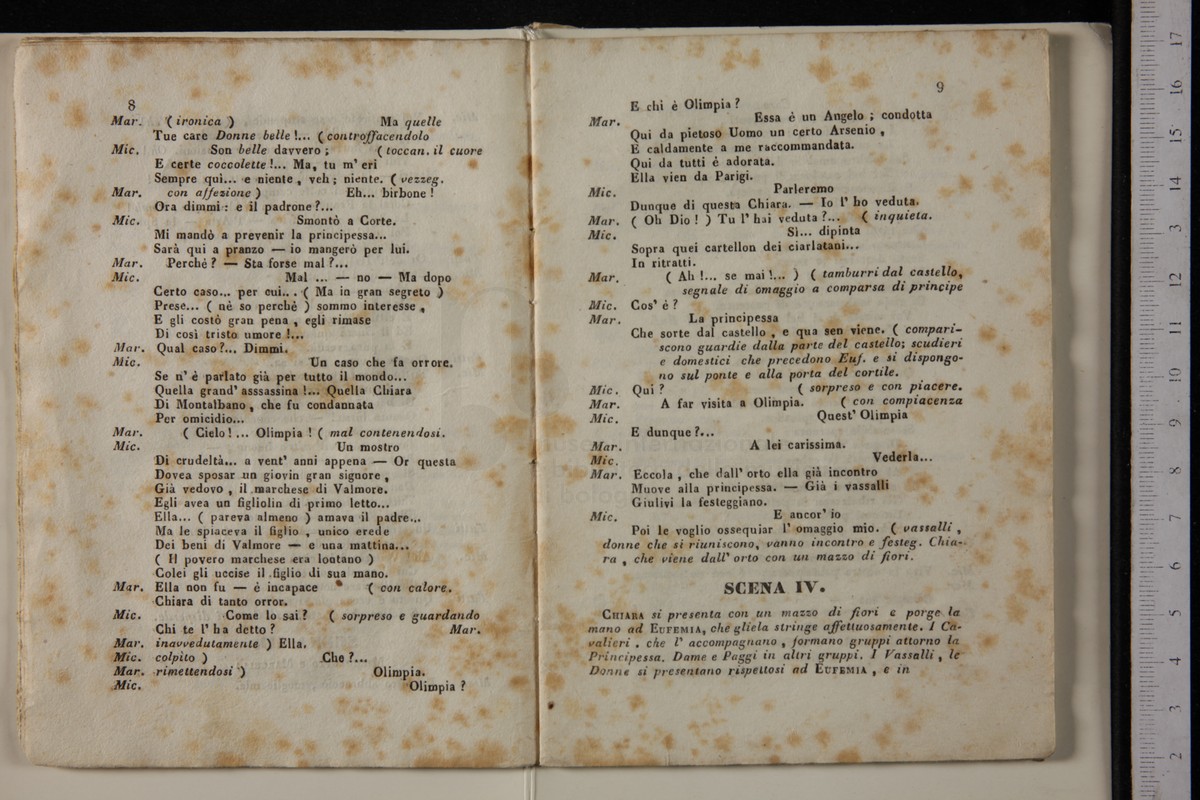 8
Mar. ( ironica ) Ma quelle
Tue care Donne belle !... ( controffacendolo
Mic. Son belle davvero ; ( toccan. il cuore
E certe coccolette !... Ma, tu m' eri
Sempre qui... e niente , veh ; niente. ( vezzeg.
Mar. con affezione ) Eh... birbone !
Ora dimmi : e il padrone ?...
Mic. Smontò a Corte.
Mi mandò a prevenir la principessa...
Sarà qui a pranzo — io mangerò per lui.
Mar. Perchè ? — Sta forse mal ?...
Mic. Mal ... — no — Ma dopo
Certo caso... per cui... ( Ma in gran segreto )
Prese... ( nè so perchè ) sommo interesse ,
E gli costò gran pena , egli rimase
Di così tristo umore !...
Mar. Qual caso ?... Dimmi.
Mic. Un caso che fa orrore.
Se n' è parlato già per tutto il mondo...
Quella grand' asssassina !... Quella Chiara
Di Montalbano , che fu condannata
Per omicidio...
Mar. ( Cielo ! ... Olimpia ! ( mal contenendosi.
Mic. Un mostro
Di crudeltà... a vent' anni appena — Or questa
Dovea sposar un giovin gran signore ,
Già vedovo , il marchese di Valmore.
Egli avea un figliolin di primo letto...
Ella... ( pareva almeno ) amava il padre...
Ma le spiaceva il figlio , unico erede
Dei beni di Valmore — e una mattina...
( Il povero marchese era lontano )
Colei gli uccise il figlio di sua mano.
Mar. Ella non fu — è incapace ( con calore.
Chiara di tanto orror.
Mic. Come lo sai ? ( sorpreso e guardando
Chi te l' ha detto ? Mar.
Mar. inavvedutamente ) Ella.
Mic. colpito ) Che ?...
Mar. rimettendosi ) Olimpia.
Mic. Olimpia ?
9
E chi è Olimpia ?
Mar. Essa è un Angelo ; condotta
Qui da pietoso Uomo un certo Arsenio ,
E caldamente a me raccommandata.
Qui da tutti è adorata.
Ella vien da Parigi.
Mic. Parleremo
Dunque di questa Chiara. — Io l' ho veduta.
Mar. ( Oh Dio ! ) Tu l' hai veduta ?... ( inquieta.
Mic. Sì... dipinta
Sopra quei cartellon dei ciarlatani...
In ritratti.
Mar. ( Ah !... se mai !... ) ( tamburri dal castello,
segnale di omaggio a comparsa di principe
Mic. Cos' è ?
Mar. La principessa
Che sorte dal castello , e qua sen viene. ( compari-
scono guardie dalla parte del castello; scudieri
e domestici che precedono Euf. e si dispongo-
no sul ponte e alla porta del cortile.
Mic. Qui ? ( sorpreso e con piacere.
Mar. A far visita a Olimpia. ( con compiacenza
Mic. Quest' Olimpia
E dunque ?...
Mar. A lei carissima.
Mic. Vederla...
Mar. Eccola , che dall' orto ella già incontro
Muove alla principessa. — Già i vassalli
Giulivi la festeggiano.
Mic. E ancor' io
Poi le voglio ossequiar l' omaggio mio. ( vassalli ,
donne che si riuniscono, vanno incontro e festeg. Chia-
ra , che viene dall' orto con un mazzo di fiori.
SCENA IV.
CHIARA si presenta con un mazzo di fiori e porge la
mano ad EUFEMIA, che gliela stringe affettuosamente. I Ca-
valieri , che l' accompagnano , formano gruppi attorno la
Principessa. Dame e Paggi in altri gruppi. I Vassalli , le
Donne si presentano rispettosi ad EUFEMIA , e in
2 3 4 5 6 7 8 9 10 11 12 13 14 15 16 17